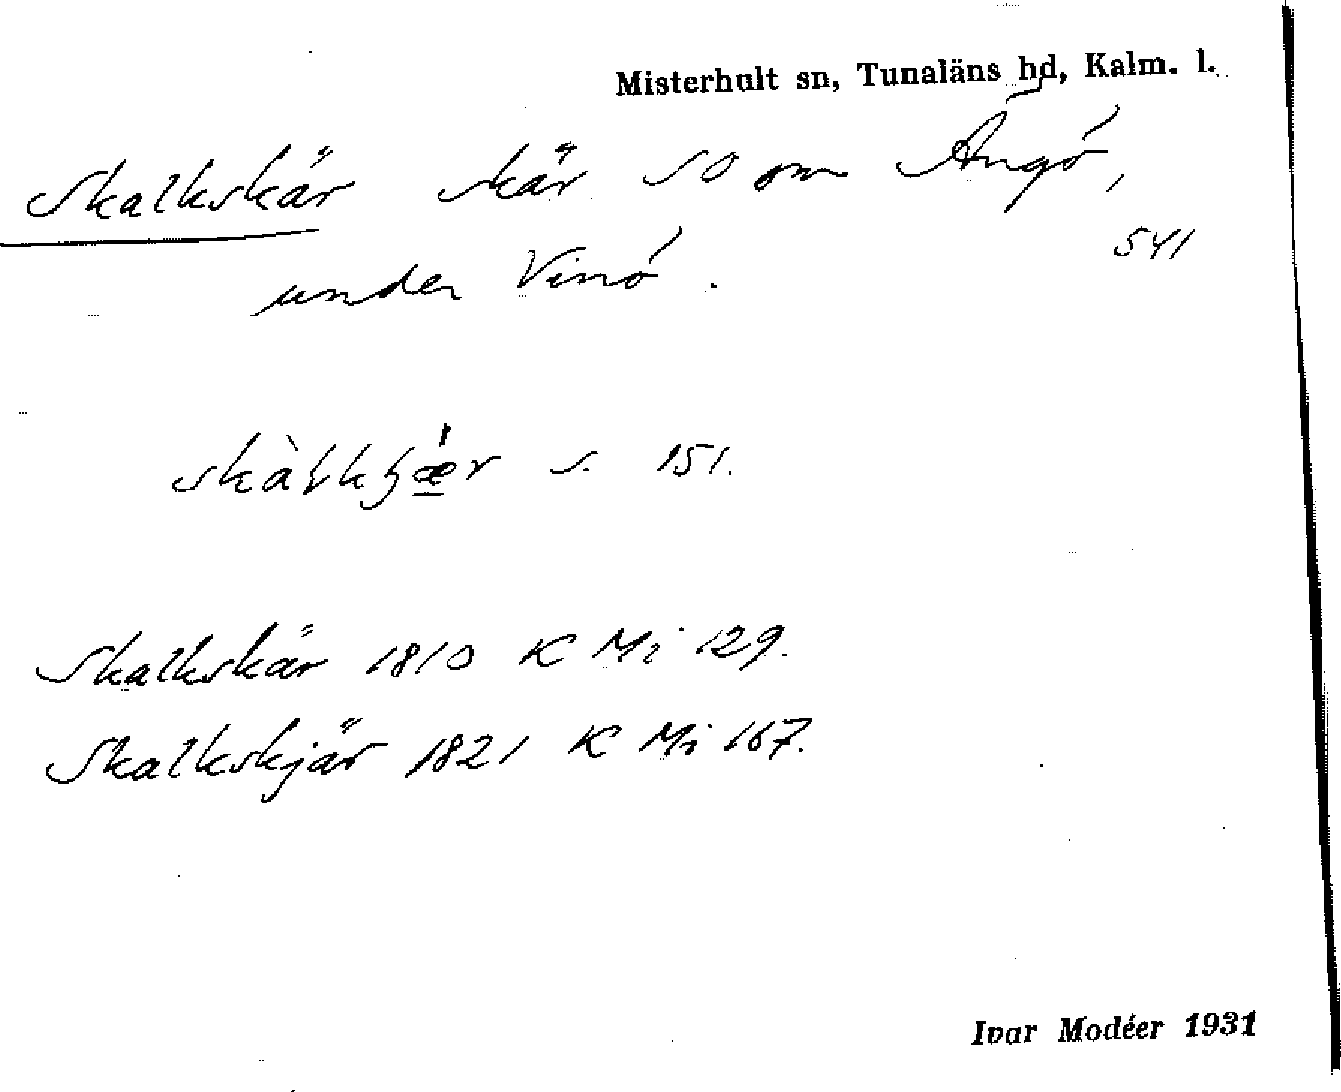 Misterhult sn, Tunaläns hd, Kalm. l.
Skalkskär skär SO om Ängö,
under Vinö.
541
s. 151.
Skalkskär 1810 K Mi 129.
Skalkskjär 1821 K Mi 167.
Ivar Modéer 1931